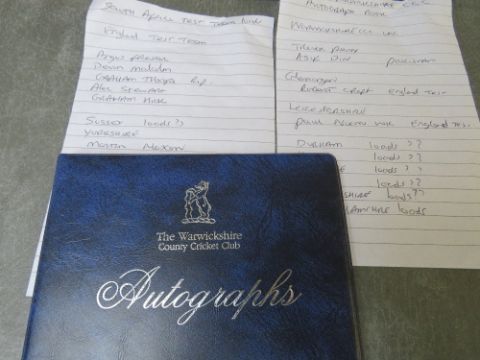 South Africa Test Team
England Test Team
Angus Fraser
Devon Malcolm
Graham Thorpe Rip
Alec Stewart
Graham Hick
Sussex loads??
Yorkshire
Martin Moxon
Autograph Book
Warwickshire CCC
Asif Din
Glamorgan
Robert Croft England Test
Leicestershire
Paul Nixon England
Durham loads??
loads??
loads??
loads??
loads??
loads
The Warwickshire
County Cricket Club
Autographs